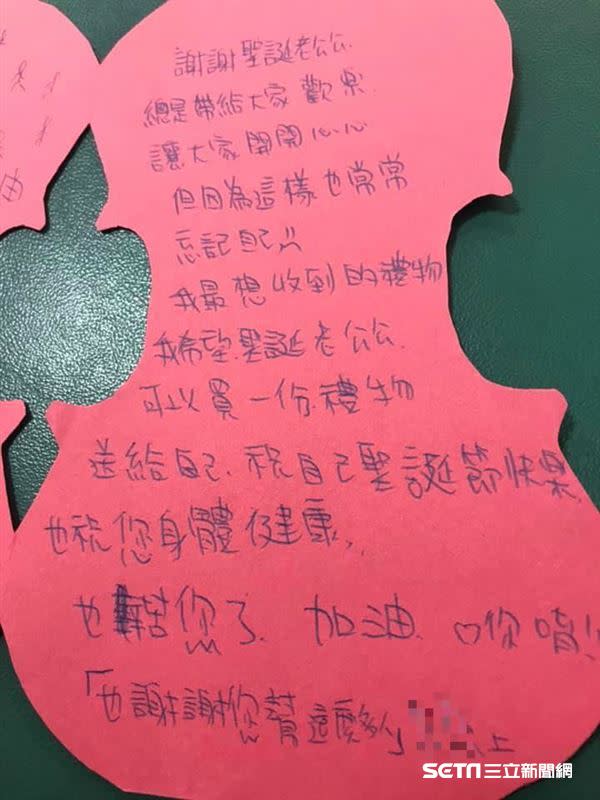 謝謝聖誕老公公
總是帶給大家歡樂
讓大家開開心心
但因為這樣也常常
忘記自己
我最想收到的禮物
我希望聖誕老公公
可以買一份禮物
送給自己、祝自己聖誕節快樂
也祝您身體健康,
也辛苦您了 加油
「也謝謝您幫這麼多人」 上
由
SETN 三立新聞網